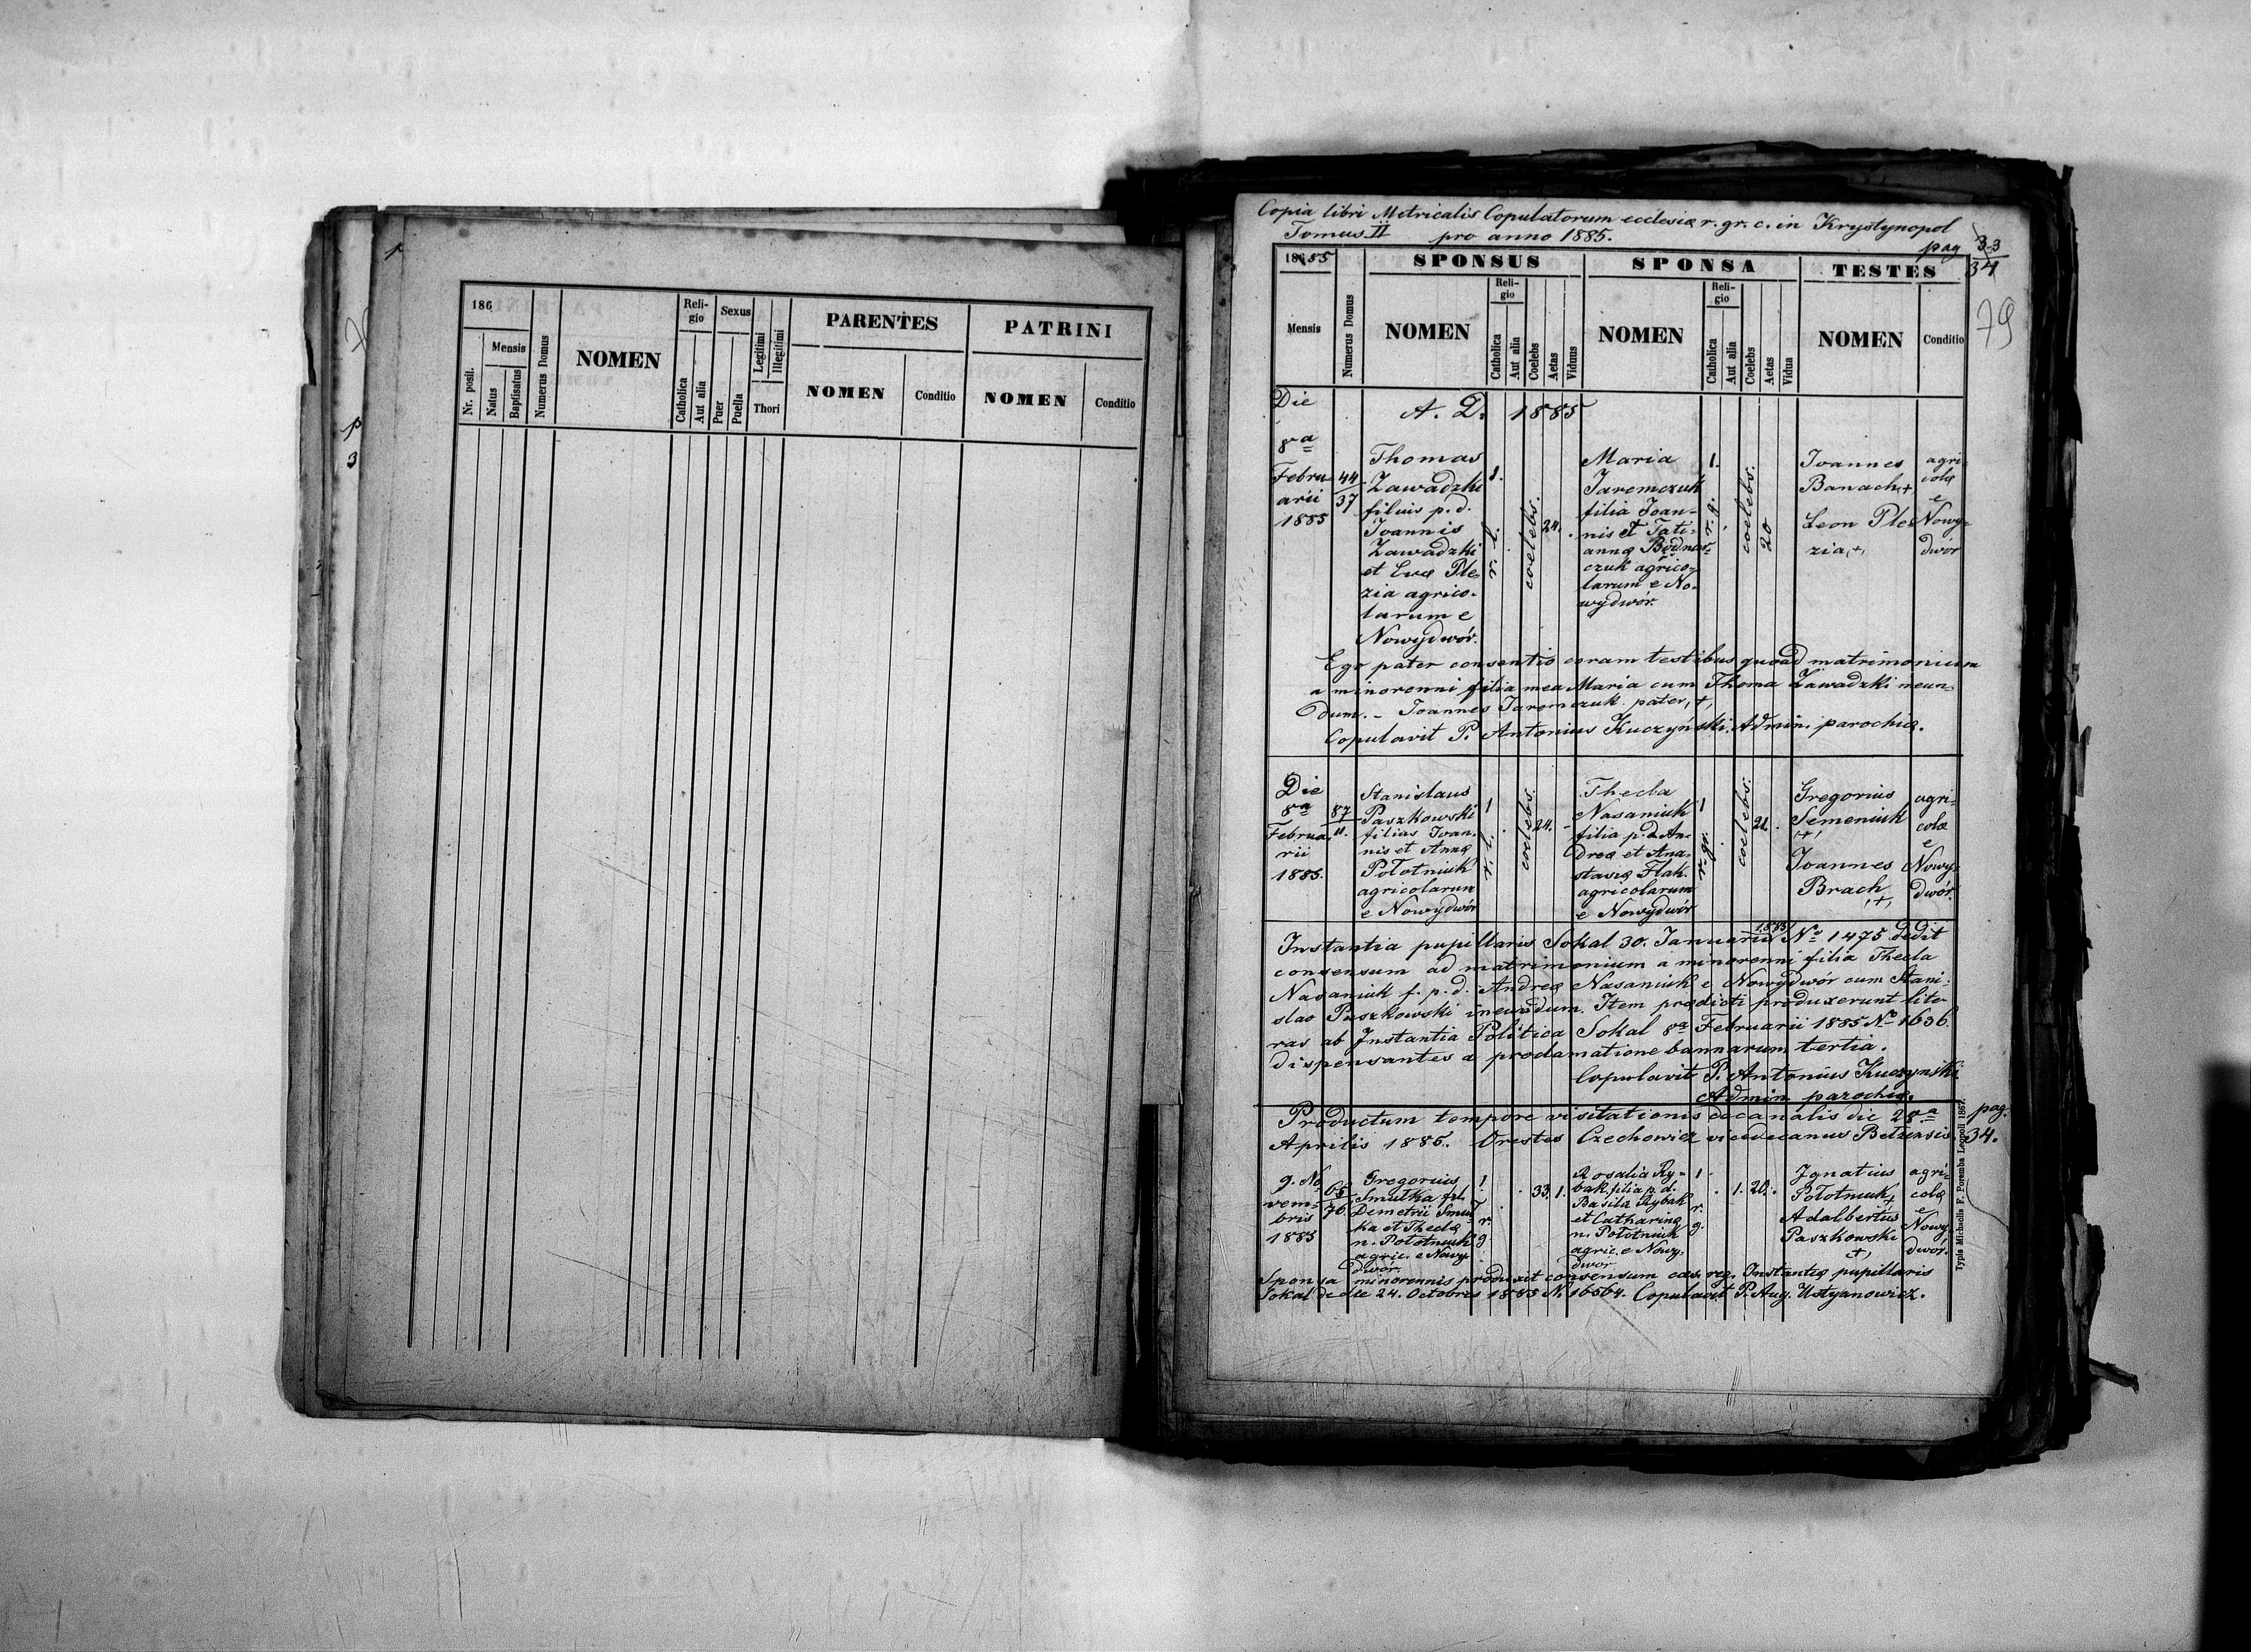 186
Nr. posit.
Mensis
Natus
Baptisatus
Numerus Domus
NOMEN
Religio
Catholica
Aut alia
Sexus
Puer
Puella
Legitimi
Illegitimi
Thori
PARENTES
NOMEN
Conditio
PATRINI
NOMEN
Conditio
Copia libri Metricalis Copulatorum ecclesiæ r. gr. c. in Krystynopol
Tomus II pro anno 1885.
pag 33
34
79
1885
Mensis
Numerus Domus
SPONSUS
NOMEN
Religio
Catholica
Aut alia
Coelebs
Aetas
Viduus
SPONSA
NOMEN
Religio
Catholica
Aut alia
Coelebs
Aetas
Vidua
TESTES
NOMEN
Conditio
A. D. 1885
Die
8va
Febru-
arii
1885
44
37
Thomas
Zawadzki
filius p. d.
Joannis
Zawadzki
et Evæ Ple-
zia agrico-
larum e
Nowydwór.
1.
r. l.
coelebs.
24.
Maria
Jaremczuk
filia Joan-
nis et Tati-
annæ Bodnar-
czuk agrico-
larum e No-
wydwór.
1.
r. g.
coelebs.
20
Joannes
Banach +
Leon Ple-
zia, +,
agri-
colæ
e
Nowy-
dwór
Ego pater consentio coram testibus quoad matrimonium
a minorenni filia mea Maria cum Thoma Zawadzki ineun-
dum. - Joannes Jaremczuk pater, +,
Copulavit P. Antonius Kuczyński, Admin. parochiæ.
Die
8va
Februa-
rii
1885.
87
11.
Stanislaus
Paszkowski
filius Joan-
nis et Annæ
Połotniuk
agricolarum
e Nowydwór
1
r. l.
coelebs.
24.
Thecla
Nasaniuk
filia p. d. An-
dreæ et Ana-
stasiæ Flak
agricolarum
e Nowydwór
1
r. gr.
coelebs.
21.
Gregorius
Semeniuk
+
Joannes
Brach
,+,
agri-
colæ
e
Nowy-
dwór.
Instantia pupillaris Sokal 30. Januarii 1885 No 1475 dedit
consensum ad matrimonium a minorenni filia Thecla
Nasaniuk f. p. d. Andreæ Nasaniuk e Nowydwór cum Stani-
slao Paszkowski ineundum. Item prædicti produxerunt lite-
ras ab Instantia Politica Sokal 8va Februarii 1885 No 1636.
dispensantes a proclamatione bannarum tertia.
Copulavit P. Antonius Kuczyński
Admin. parochiæ.
Productum tempore visitationis decanalis die 28va
Aprilis 1885. Orestes Czechowicz vicedecanus Bełzensis.
pag.
34.
9. No-
vem-
bris
1885
65
76.
Gregorius
Smulka fil.
Demetrii Smul-
ka et Theclæ
n. Połotniuk
agric. e Nowy-
dwór.
1
r.
g
33.
1.
Rosalia Ry-
bak filia p. d.
Basilii Rybak
et Catharinæ
n. Połotniuk
agric. e Nowy-
dwor
1
r.
g.
1.
20.
Ignatius
Połotniuk +
Adalbertus
Paszkowski
+,
agri-
colæ
e
Nowy-
dwór.
Sponsa minorennis produxit consensum cæs. reg. Instantiæ pupillaris
Sokal de dte 24. Octobris 1885 N. 16564. Copulavit P. Aug. Ustyanowicz.
Typis Michaelis F. Poremba Leopoli 1867.